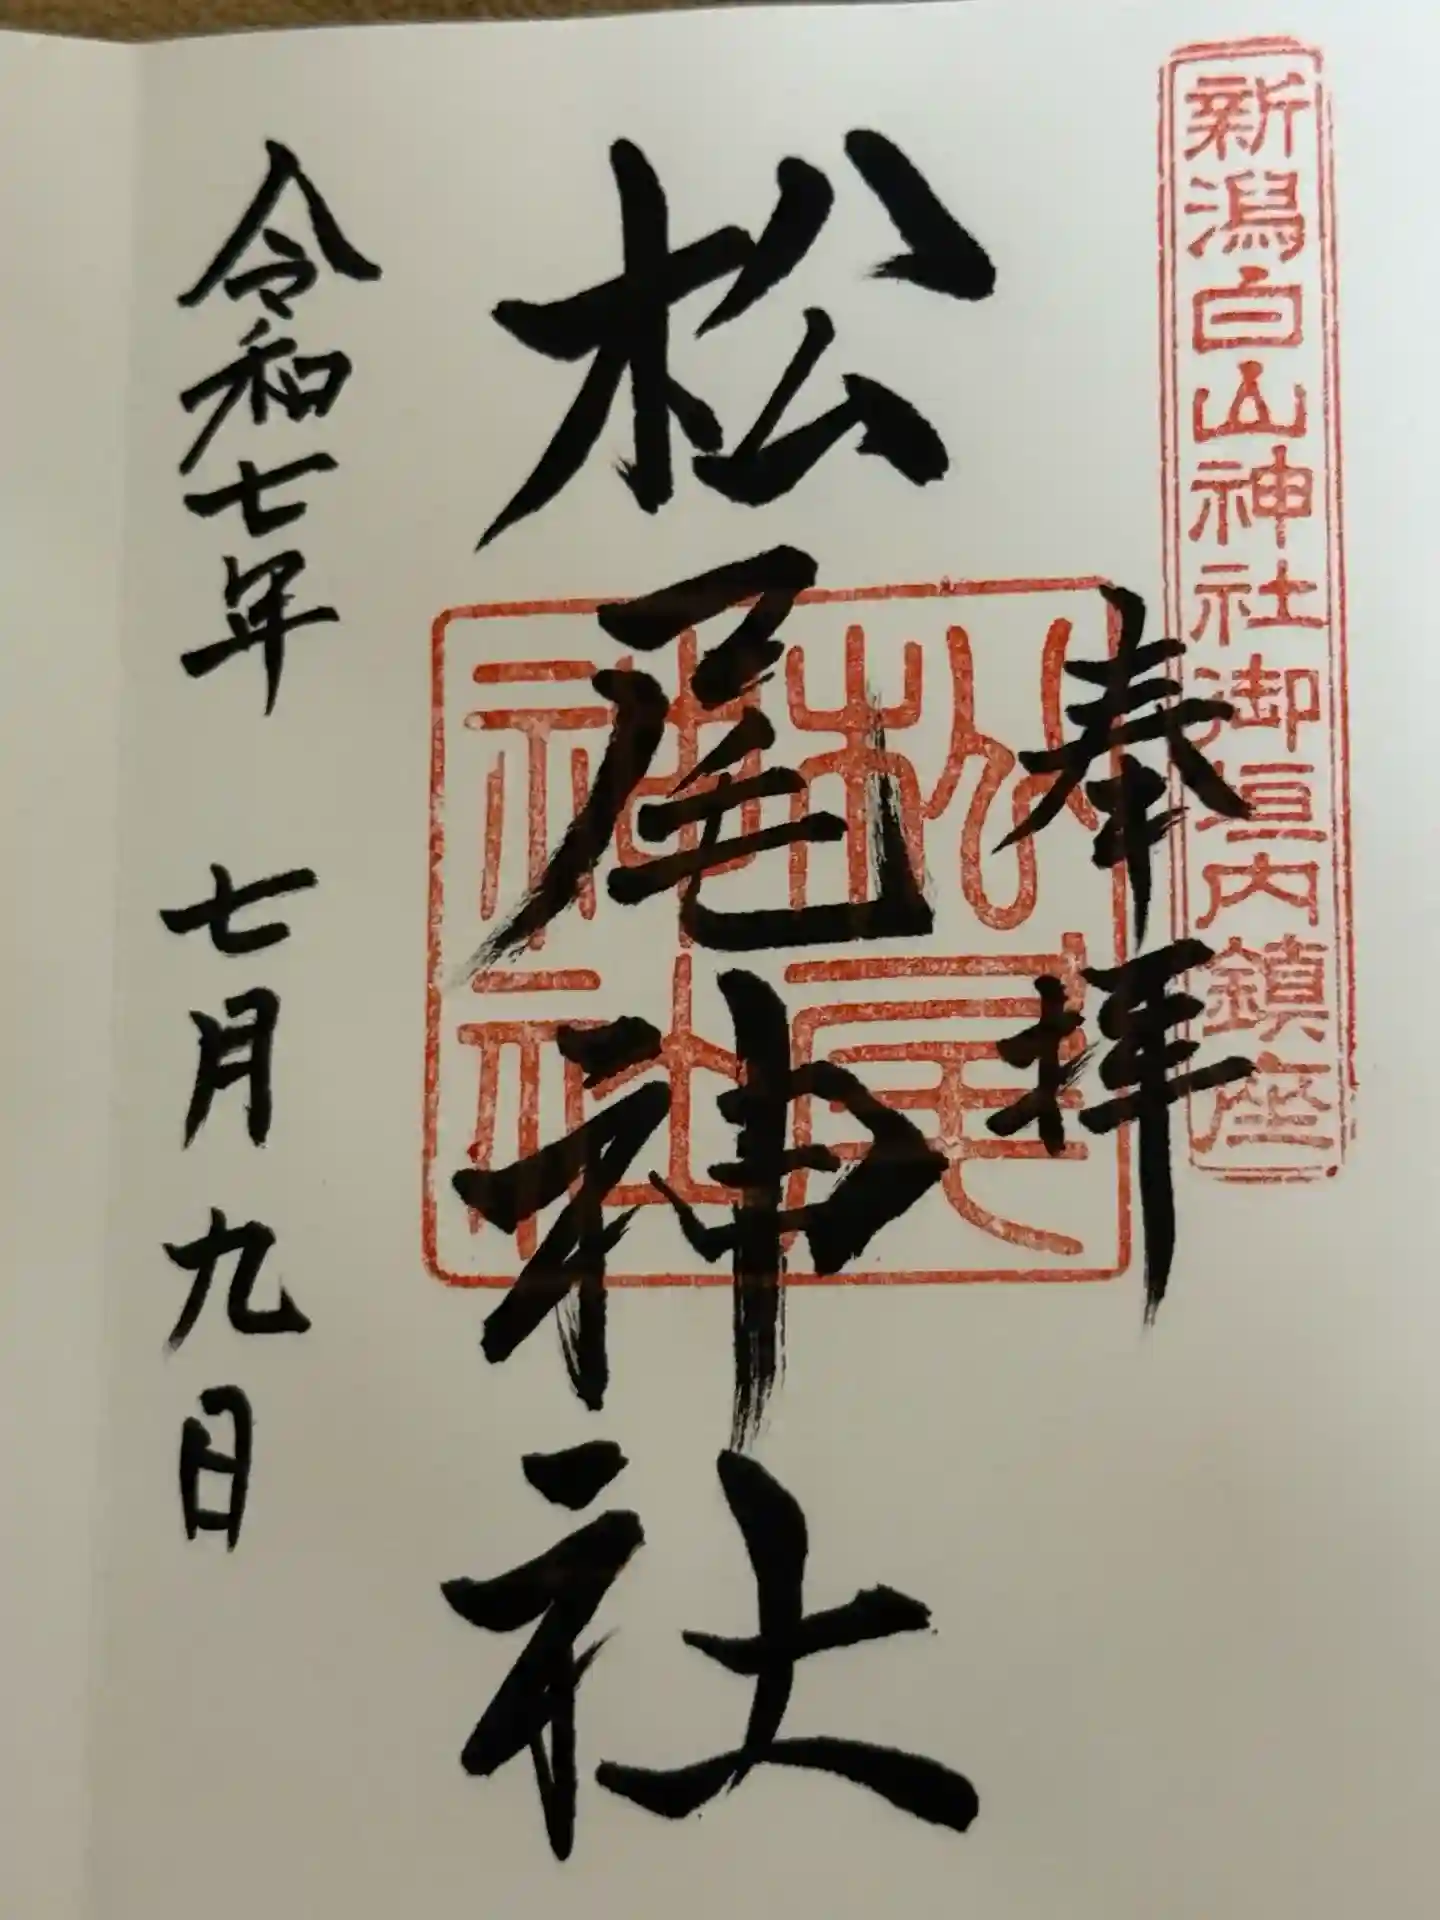 新潟白山神社御垣内鎮座
奉拝
松尾神社
松尾
神社
令和七年 七月九日